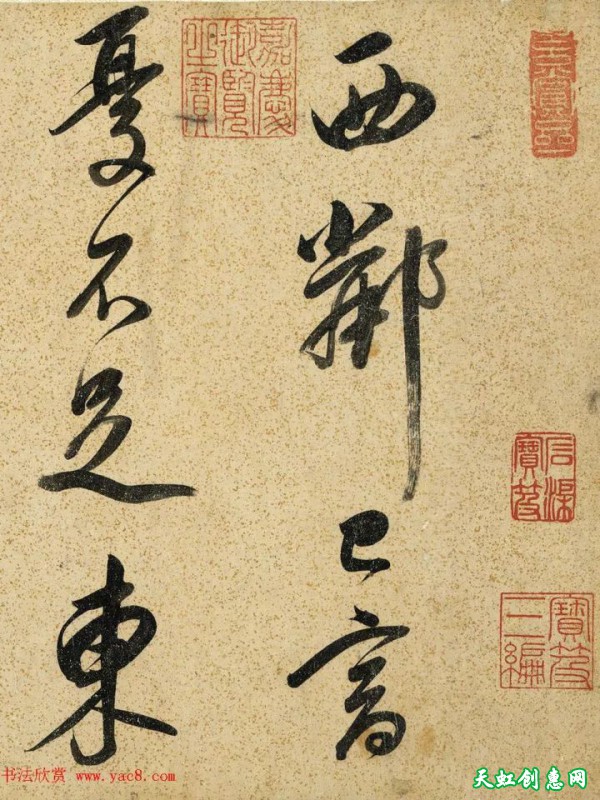 西鄰已富
憂不足東
嘉慶御覽之寶
石渠寶笈
寶笈三編
书法欣赏 www.yac8.com
天虹创惠网